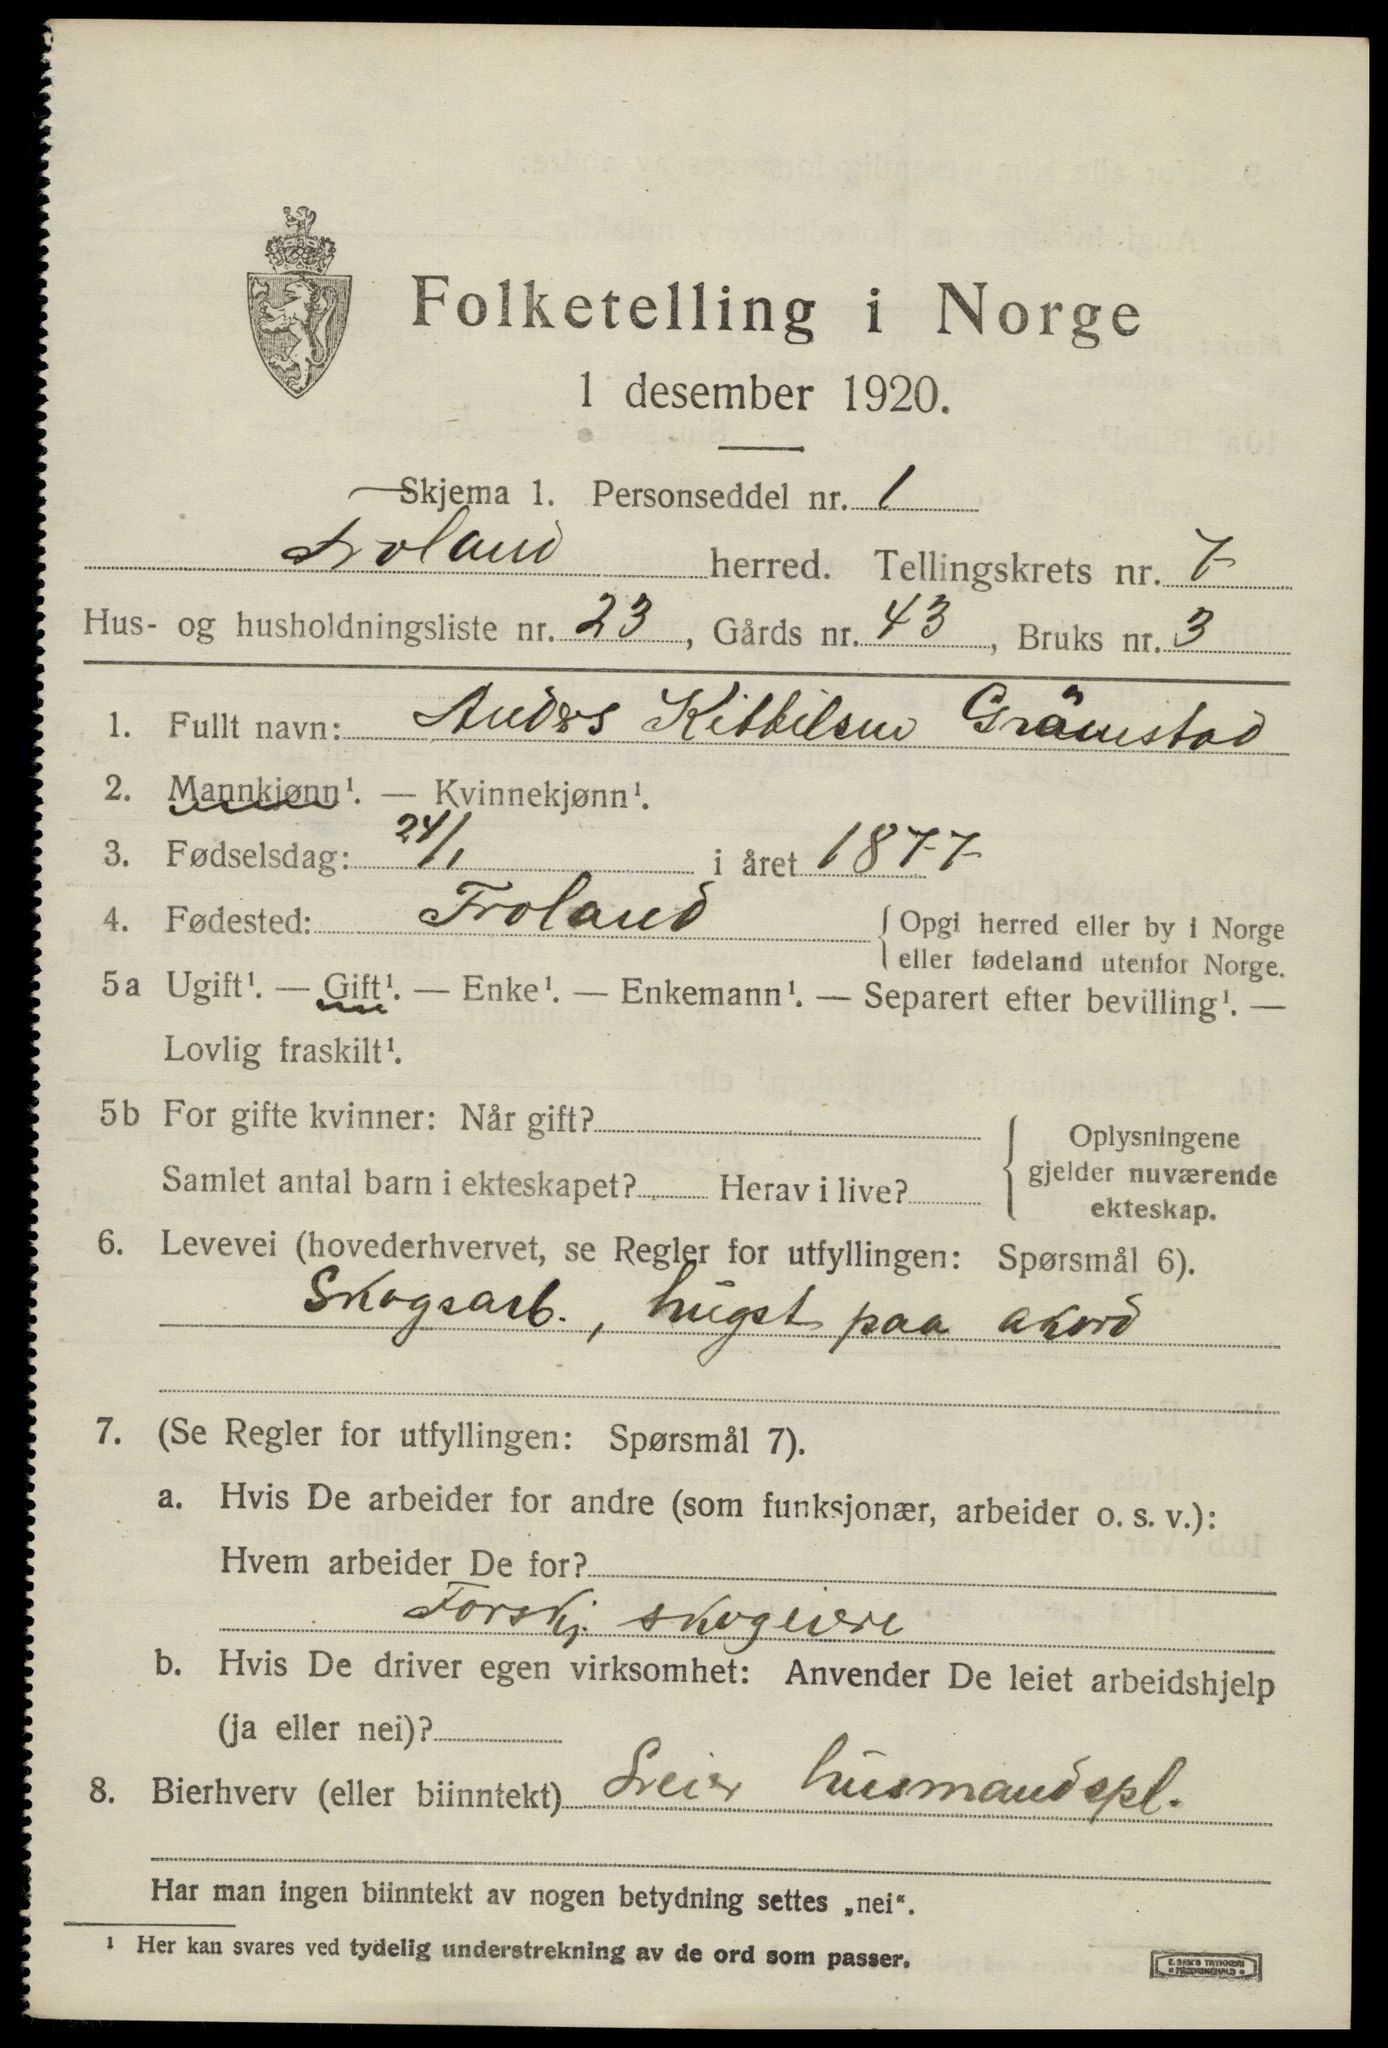 Folketelling i Norge
1 desember 1920.
Skjema 1. Personseddel nr. 1
Froland herred. Tellingskrets nr. 7
Hus- og husholdningsliste nr. 23, Gårds nr. 43, Bruks nr. 3
1. Fullt navn: Anders Kittilsen Gråmstad
2. Mannkjønn¹. — Kvinnekjønn¹.
3. Fødselsdag: 24/1 i året 1877
4. Fødested: Froland { Opgi herred eller by i Norge
eller fødeland utenfor Norge.
5a Ugift¹. — Gift¹. — Enke¹. — Enkemann¹. — Separert efter bevilling¹. —
Lovlig fraskilt¹.
5b For gifte kvinner: Når gift? { Oplysningene
gjelder nuværende
ekteskap.
Samlet antal barn i ekteskapet? Herav i live?
6. Levevei (hovederhvervet, se Regler for utfyllingen: Spørsmål 6).
Skogsarb., hugst paa akord
7. (Se Regler for utfyllingen: Spørsmål 7).
a. Hvis De arbeider for andre (som funksjonær, arbeider o. s. v.):
Hvem arbeider De for?
Forskj. skogeiere
b. Hvis De driver egen virksomhet: Anvender De leiet arbeidshjelp
(ja eller nei)?
8. Bierhverv (eller biinntekt) Leier husmandspl.
Har man ingen biinntekt av nogen betydning settes „nei“.
¹ Her kan svares ved tydelig understrekning av de ord som passer.
E. SEM'S TRYKKERI
FREDRIKSHALD